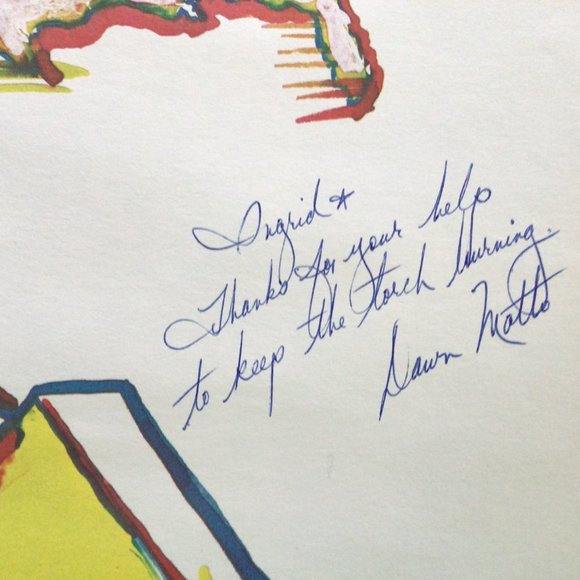 Ingrid*
Thanks for your help
to keep the torch burning.
Dawn Matto